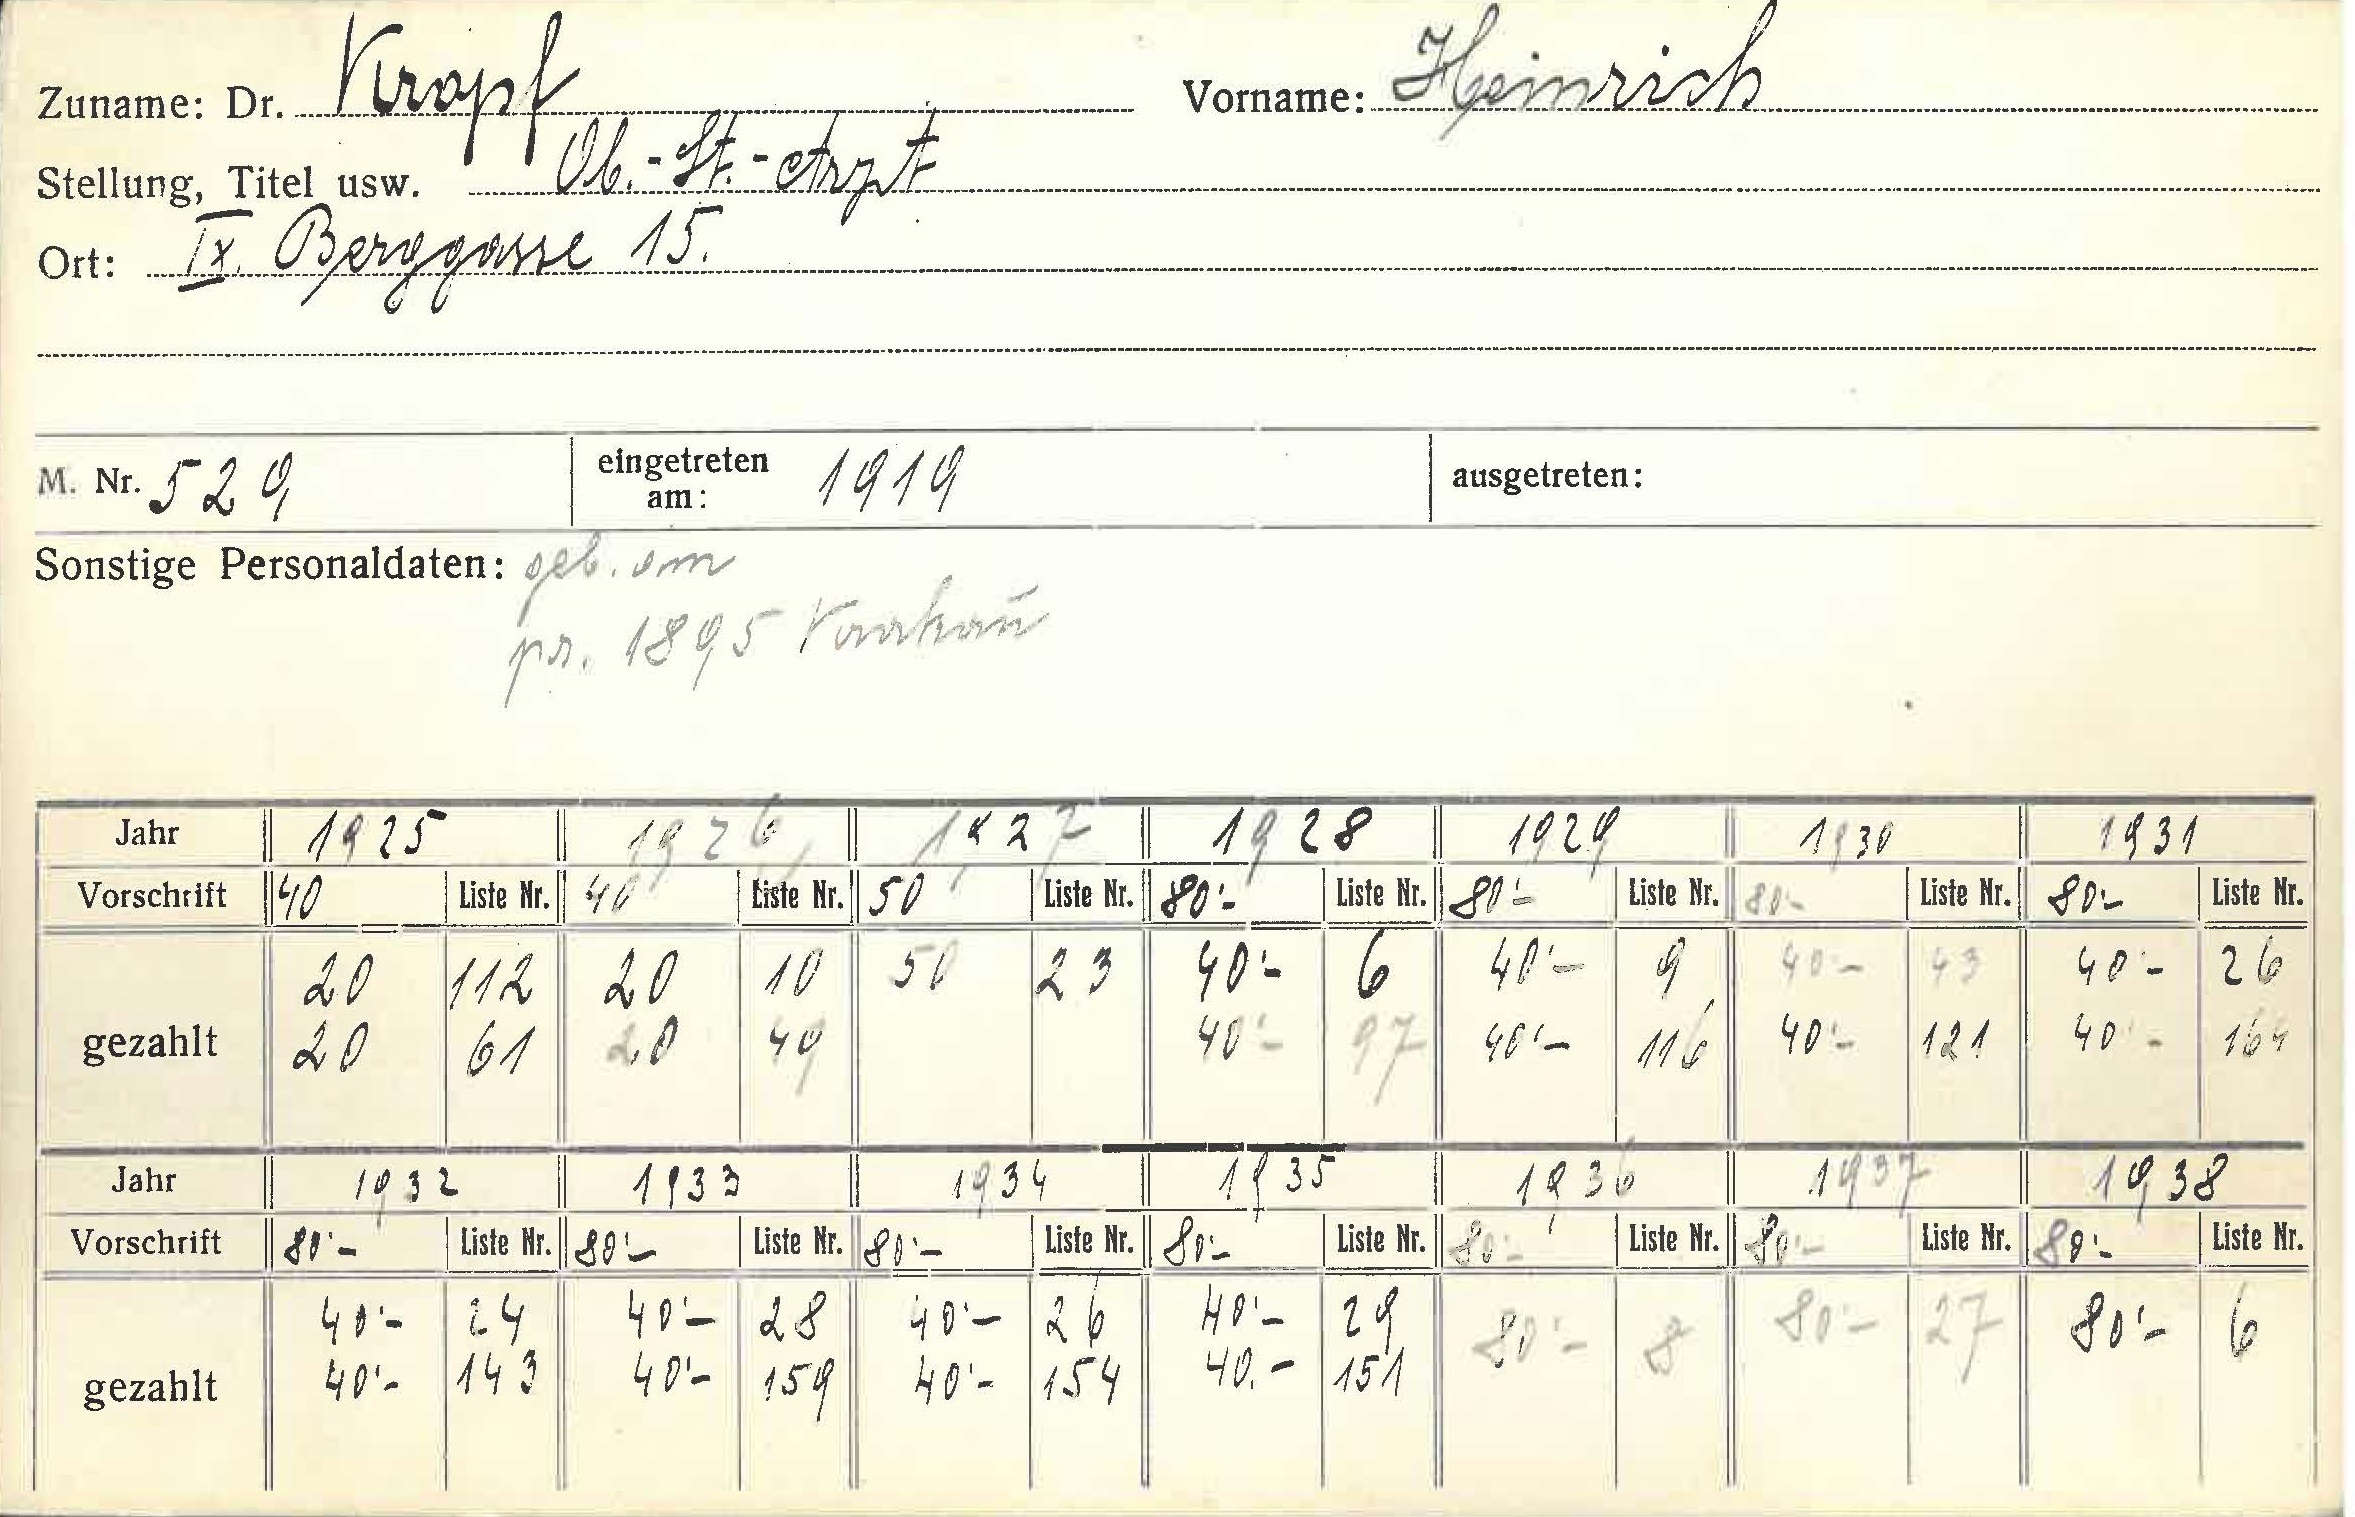 Zuname: Dr. Kropf Vorname: Heinrich
Stellung, Titel usw. Ob.-St.-Arzt
Ort: IX. Berggasse 15.
M. Nr. 529 eingetreten am: 1919 ausgetreten:
Sonstige Personaldaten: geb. am
pr. 1895 Krakau
Jahr 1925 1926 1927 1928 1929 1930 1931
Vorschrift 40 Liste Nr. 40 Liste Nr. 50 Liste Nr. 80'- Liste Nr. 80'- Liste Nr. 80'- Liste Nr. 80'- Liste Nr.
20 112 20 10 50 23 40'- 6 40'- 9 40'- 43 40'- 26
gezahlt 20 61 20 49 40'- 97 40'- 116 40'- 121 40'- 164
Jahr 1932 1933 1934 1935 1936 1937 1938
Vorschrift 80'- Liste Nr. 80'- Liste Nr. 80'- Liste Nr. 80'- Liste Nr. 80'- Liste Nr. 80'- Liste Nr. 80'- Liste Nr.
40'- 24 40'- 28 40'- 26 40'- 29 80'- 8 80'- 27 80'- 6
gezahlt 40'- 143 40'- 159 40'- 154 40.- 151